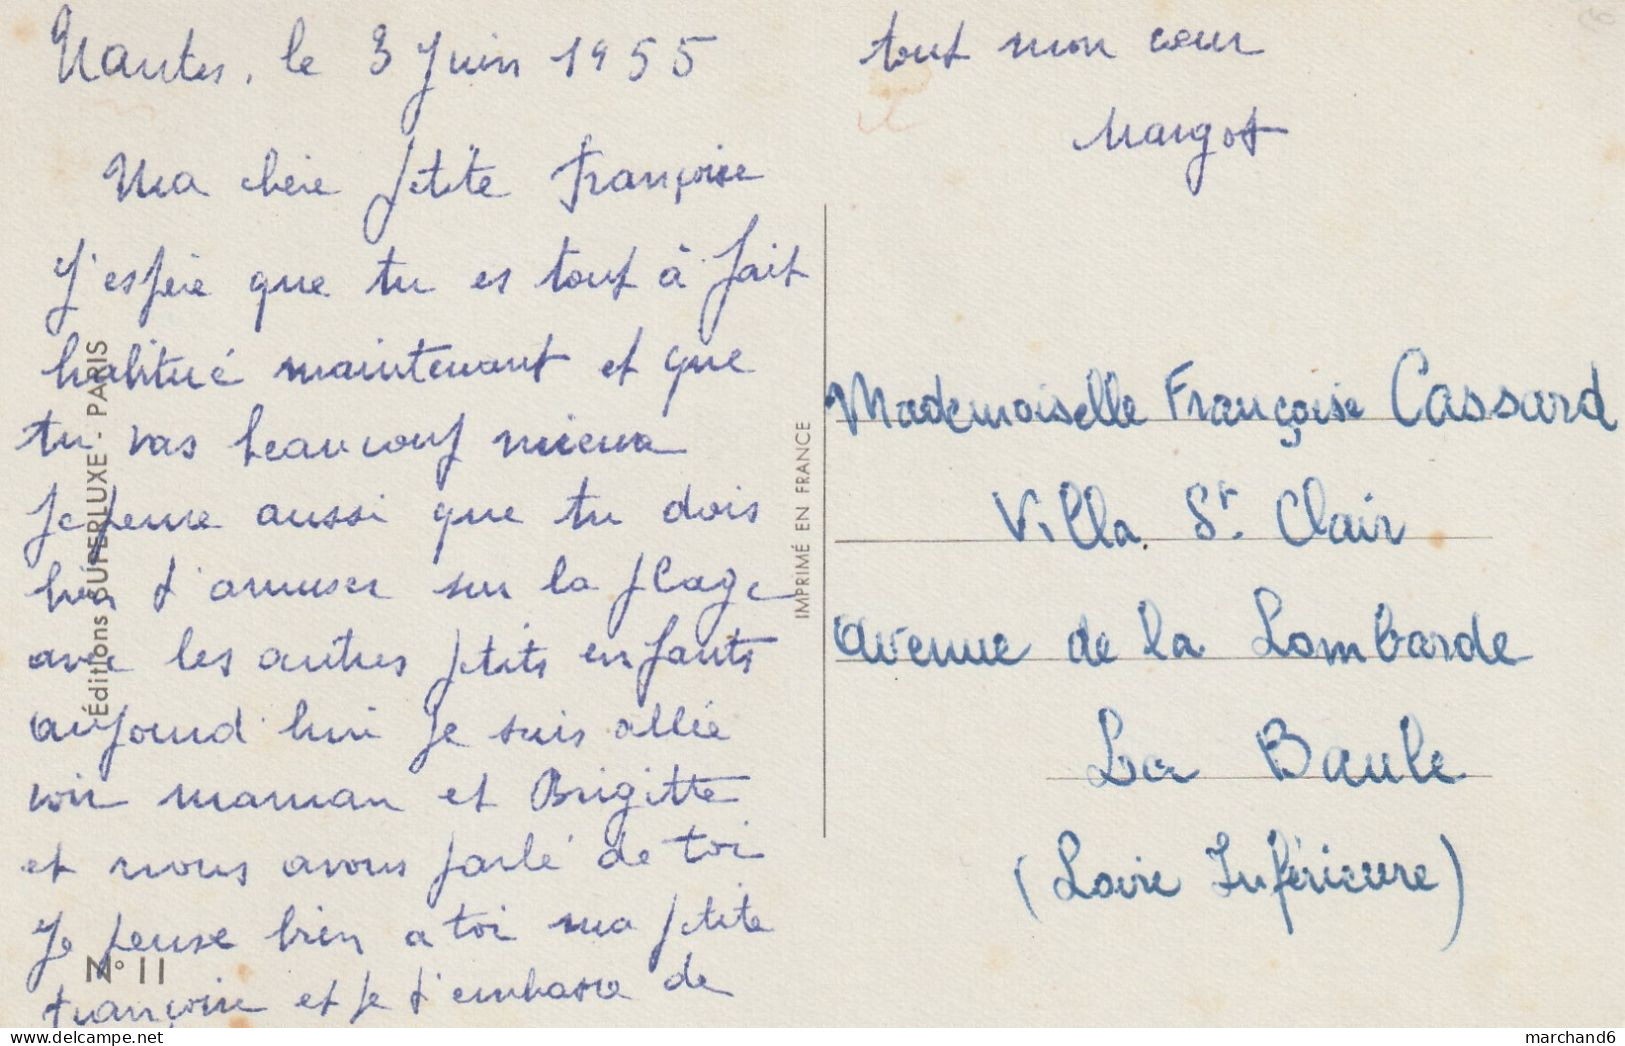 Nantes, le 3 Juin 1955
Ma chère petite Françoise
J'espère que tu es tout à fait
habitué maintenant et que
tu vas beaucoup mieux
Je pense aussi que tu dois
bien t'amuser sur la plage
avec les autres petits enfants
aujourd hui je suis allée
voir maman et Brigitte
et nous avons parlé de toi
Je pense bien a toi ma petite
Françoise et je t'embrasse de
tout mon cœur
Margot
Éditions SUPERLUXE - PARIS
N° 11
IMPRIMÉ EN FRANCE
Mademoiselle Françoise Cassard
Villa St. Clair
Avenue de la Lombarde
La Baule
(Loire Inférieure)
marchand6